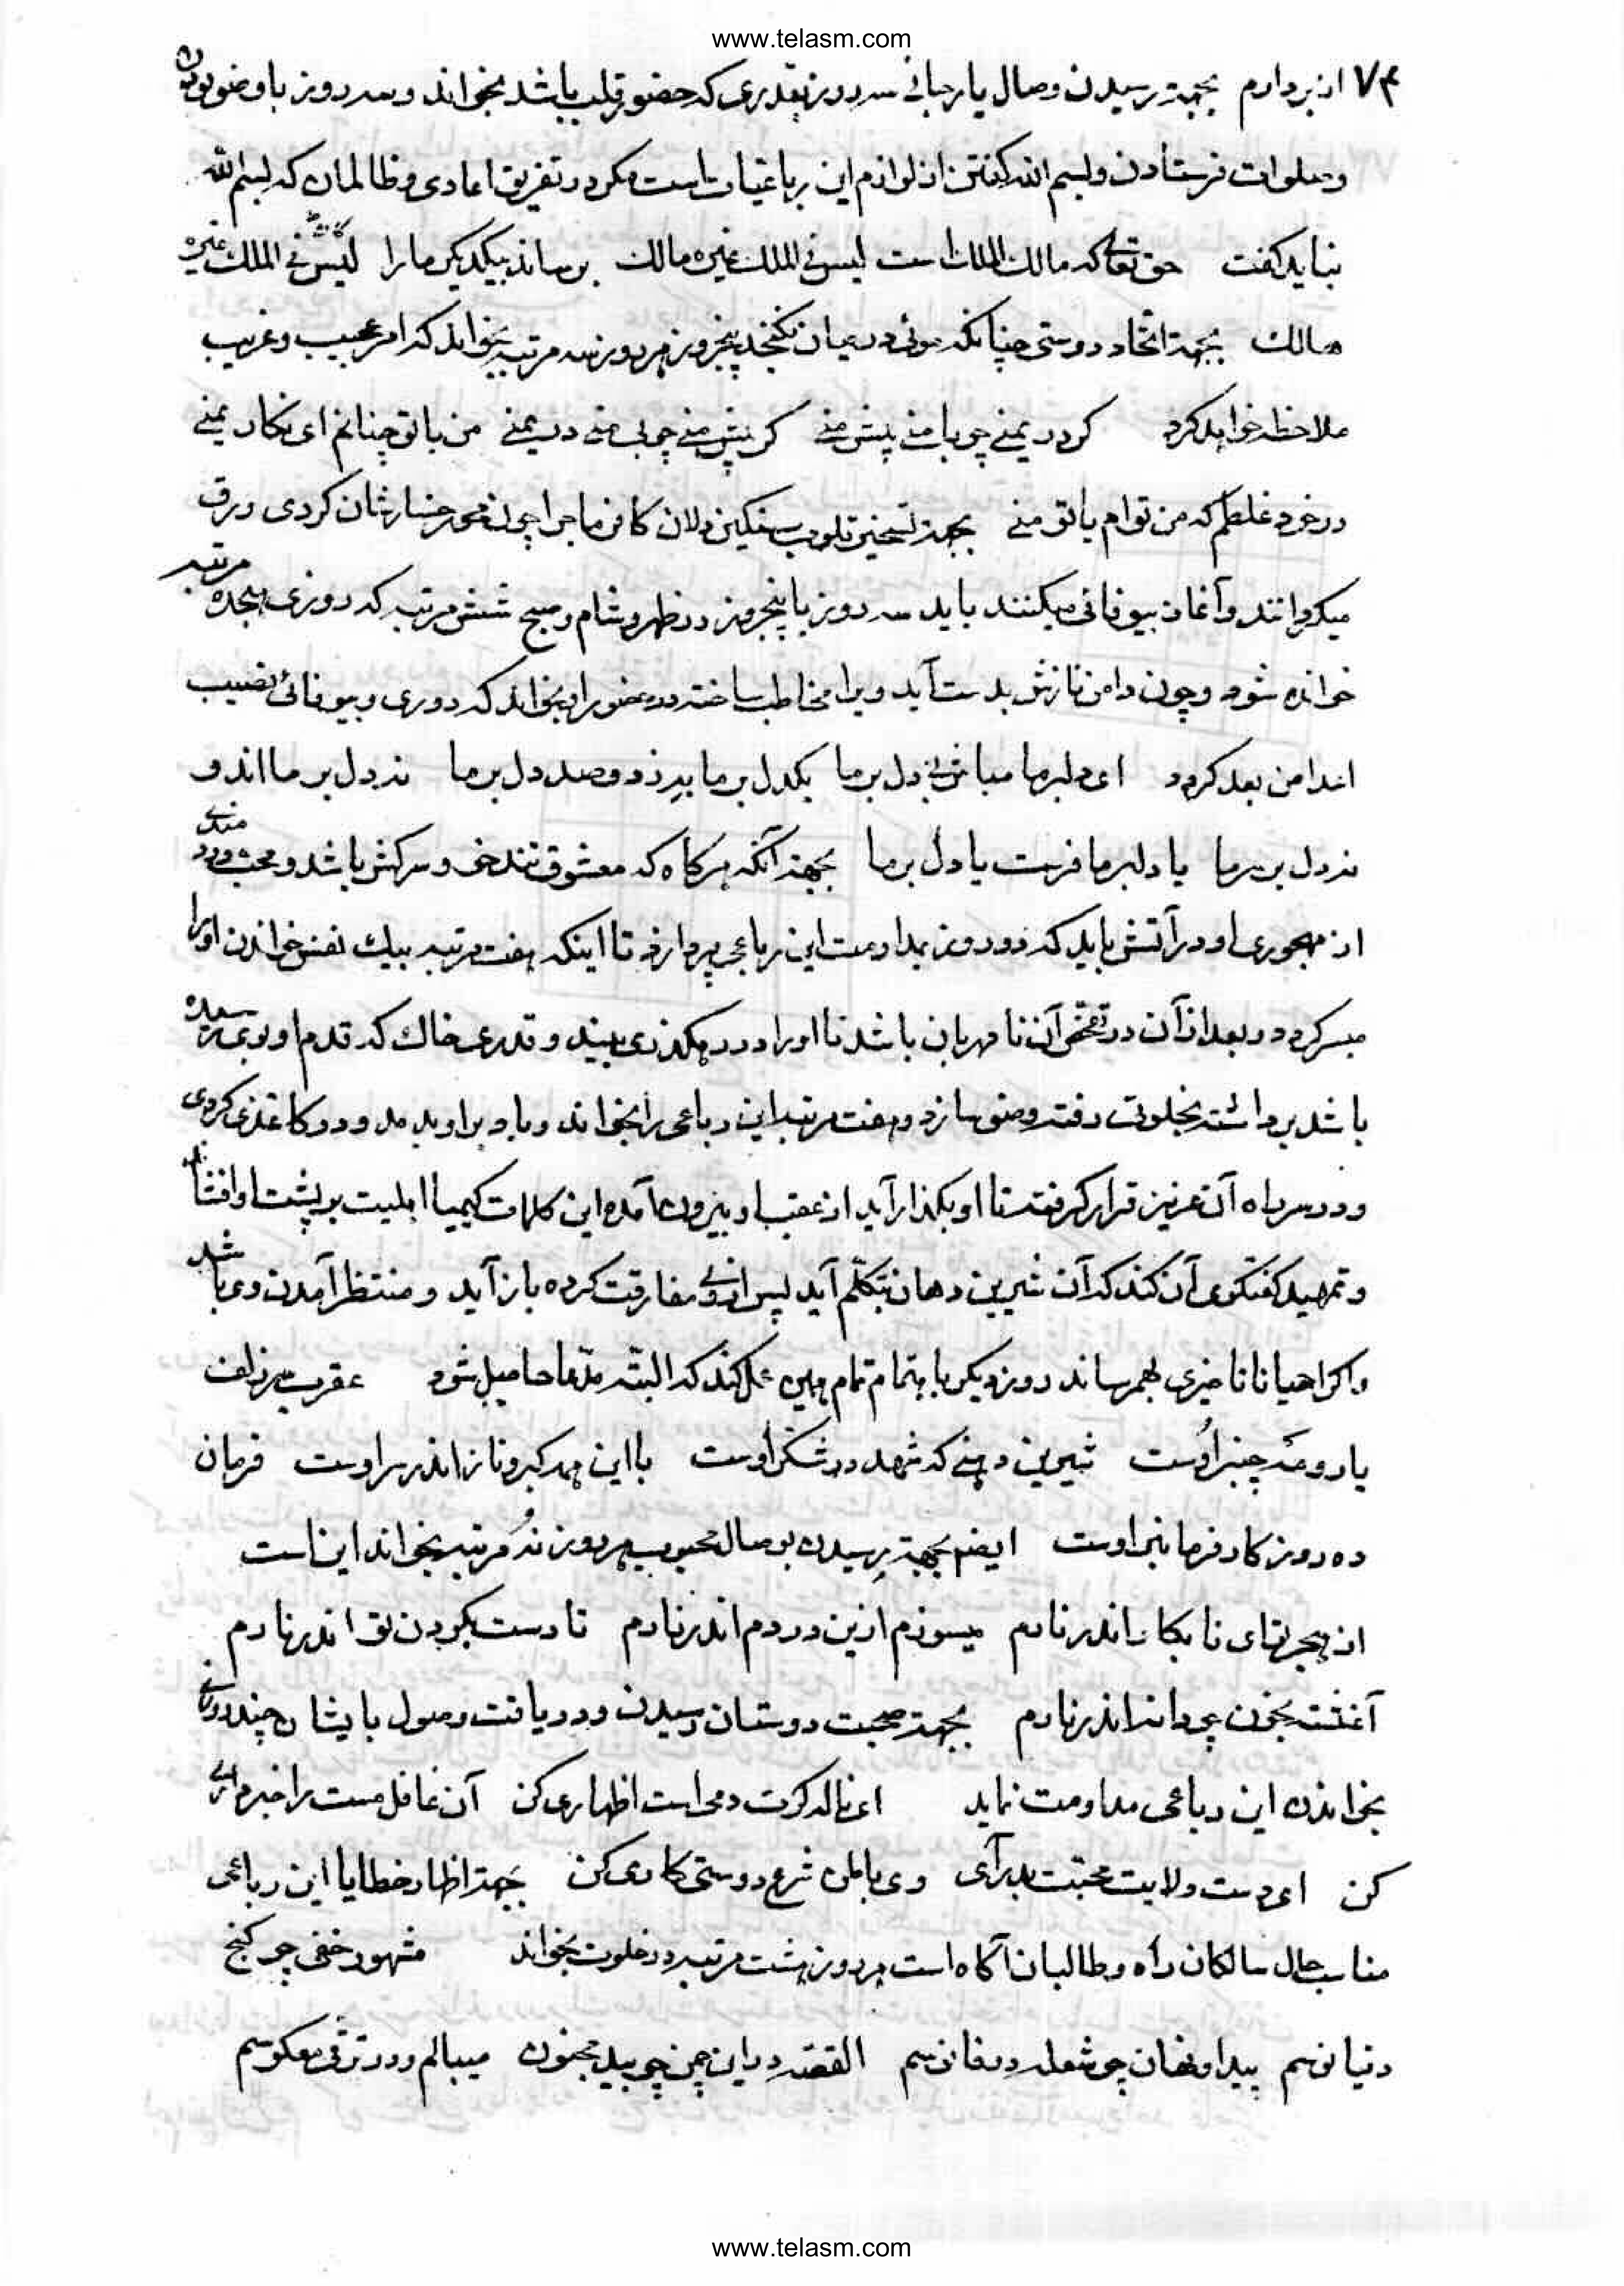 www.telasm.com
۷۴ از بر دارم بجهة رسیدن وصال یار جانی سه روز بقدری که حضور قلب باشد بخواند و سه روز با وضو بودن
و صلوات فرستادن و بسم الله گفتن از لوازم این رباعیات است مگر در تفریق اعادی و ظالمان که بسم الله
نباید گفت حق تعالی که مالک الملک است لیس فی الملک غیره مالک برساند بیکدیگر ما را لیس فی الملک غیره
مالک بجهة اتحاد و دوستی چنانکه موئی در میان نگنجد پنجروز هر روز سه مرتبه بخواند که امر عجیب و غریب
ملاحظه خواهد کرد گر در یمنی چو با منی پیش منی گر پیش منی چو بی منی در یمنی من با تو چنانم ای نگار یمنی
در خود غلطم که من توام یا تو منی بجهة تسخیر قلوب سنگین دلان کافر ماجرا چون رخسارشان کردی ورق
میگردانند و آغاز بیوفائی میکنند باید سه روز یا پنجروز در ظهر و شام و صبح شش مرتبه که روزی هیجده مرتبه
خوانده شود و چون دامن نازش بدست آید ویرا مخاطب ساخته در حضور او بخواند که دوری و بیوفائی نصیب
اعدا من بعد گردد ای دلبر ما مباش بی دل بر ما یکدل بر ما به ز دو صد دل بر ما نه دل بر ما اندو
نه دل بر بر ما یا دلبر ما فرست یا دل بر ما بجهة آنکه هرگاه که معشوق تندخو و سرکش باشد و محب دردمندی
از مهجوری او در آتش باید که دو روز بمداومت این رباعی پردازد تا اینکه هفت مرتبه بیک نفس خواندن او را
میسر گردد و بعد از آن در تفحص آن نامهربان باشد تا او را در رهگذری بیند و قدری خاک که قدم او بوی رسیده
باشد برداشته بخلوت رفته وضو سازد و هفت مرتبه این رباعی را بخواند و باد بر او بدمد و در کاغذی کرده
و در سر راه آن عزیز قرار گرفته تا او بگذار آید از عقب او بیرون آمده این کلمات کیمیا اهلیت بر پشت او افشاند
و تمهید گفتگوی آن کند که آن شیرین دهان بتکلم آید پس از وی مفارقت کرده باز آید و منتظر آمدن وی باشد
و اگر احیانا تاخیری بهم رساند روز دیگر باهتمام تمام همین عمل کند که البته مدعا حاصل شود عقرب سر زلف
یار و مه چنبر اوست شیرین دهنی که شهد در شکر اوست با این همه کبر و ناز اندر سر اوست فرمان
ده روزگار فرمانبر اوست ایضا بجهة رسیدن بوصال محبوب هر روز نه مرتبه بخواند این است
از هجر تو ای نابکار اندر نارم میسوزم ازین درد و دم اندر نارم تا دست بگردن تو اندر نارم
آغشته بخون چو دانه اندر نارم بجهة صحبت دوستان رسیدن و دریافت وصول بایشان چند روزی
بخواندن این رباعی مداومت نماید ای ناله گرت دمی است اظهاری کن آن غافل مست را خبردار
کن ای دست ولایت محبت بدر آی وی باطن شرع دوستی کاری کن بجهة اظهار خطایا این رباعی
مناسب حال سالکان راه و طالبان آگاه است هر روز هشت مرتبه در خلوت بخواند مشهور و خفی چو گنج
دقیانوسم پیدا و نهان چو شعله در فانوسم القصه در این چمن چو بید مجنون میبالم و در ترقی معکوسم
www.telasm.com